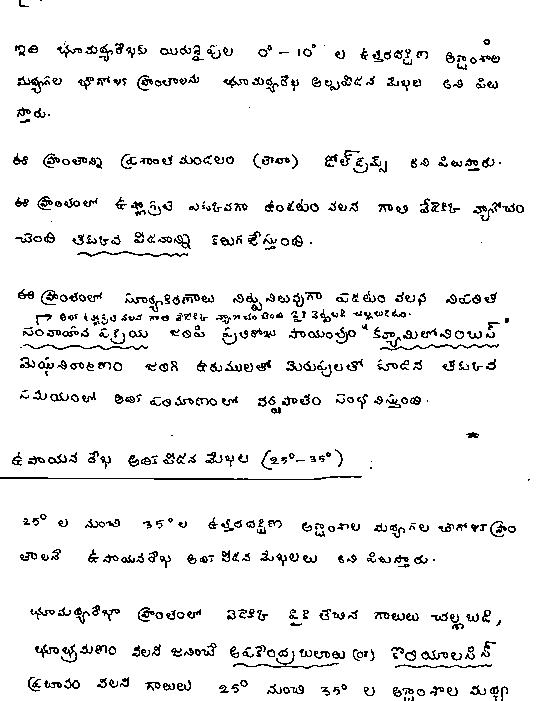 ఇది భూమధ్యరేఖకు యిరువైపుల 0° – 10° ల ఉత్తరదక్షిణ అక్షాంశాల
మధ్యగల భాగోళిక ప్రాంతాలను భూమధ్యరేఖ అల్పపీడన మేఖల అని పిలు
స్తారు.
ఈ ప్రాంతాన్ని ప్రశాంత మండలం (లేదా) డోల్‌డ్రమ్స్ అని పిలుస్తారు.
ఈ ప్రాంతంలో ఉష్ణోగ్రత ఎక్కువగా ఉండటం వలన గాలి వేడెక్కి వ్యాకోచం
చెంది తక్కువ పీడనాన్ని కలుగచేస్తుంది.
ఈ ప్రాంతంలో సూర్యకిరణాలు నిట్టనిలువుగా పడటం వలన
సంవాహన ప్రక్రియ జరిపి ప్రతిరోజు సాయంత్రం "క్యుములోనింబస్"
మేఘనిర్మాణం జరిగి ఉరుములతో మెరుపులతో కూడిన తక్కువ
సమయంలో అధిక పరిమాణంలో వర్షపాతం సంభవిస్తుంది.
ఉపాయన రేఖ అధిక పీడన మేఖల (25°–35°)
25° ల నుంచి 35° ల ఉత్తరదక్షిణ అక్షాంశాల మధ్యగల భాగోళిక ప్రాం
తాలనే ఉపాయనరేఖ అధిక పీడన మేఖలలు అని పిలుస్తారు.
భూమధ్యరేఖా ప్రాంతంలో వేడెక్కి పైకి లేచిన గాలులు చల్లబడి,
భూభ్రమణం వలన జనించే అపకేంద్రబలాలు (or) కొరియాలసిస్
ప్రభావం వలన గాలులు 25° నుంచి 35° ల అక్షాంశాల మధ్య